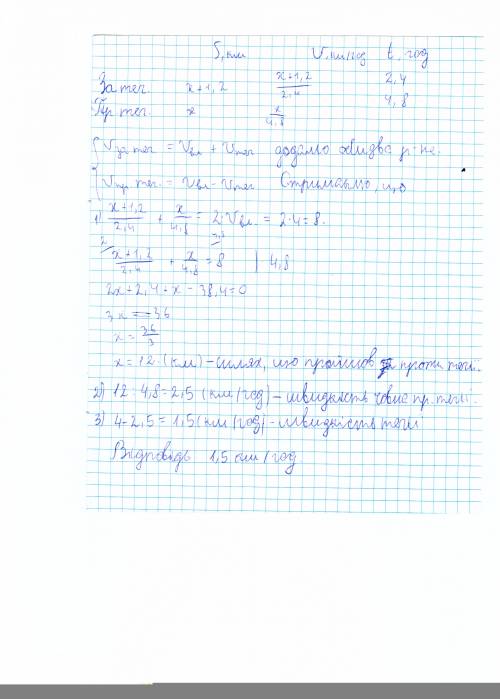 S, км V, км/год t, год
За теч. x+1,2 x+1,2/2,4 2,4
Пр теч. x x/4,8 4,8
{ Vза теч = Vвл + Vтеч додамо обидва р-не.
{ Vпр теч. = Vвл - Vтеч Отримаємо, що
1) x+1,2/2,4 + x/4,8 = 2·Vвл. = 2·4 = 8.
x+1,2/2,4 + x/4,8 = 8 | 4,8
2x+2,4+x-38,4=0
3x = 36
x = 36/3
x = 12 (км) - шлях, що пройшов проти течії.
2) 12 : 4,8 = 2,5 (км/год) - швидкість човна пр. течії.
3) 4-2,5 = 1,5 (км/год) - швидкість течії
Відповідь 1,5 км/год